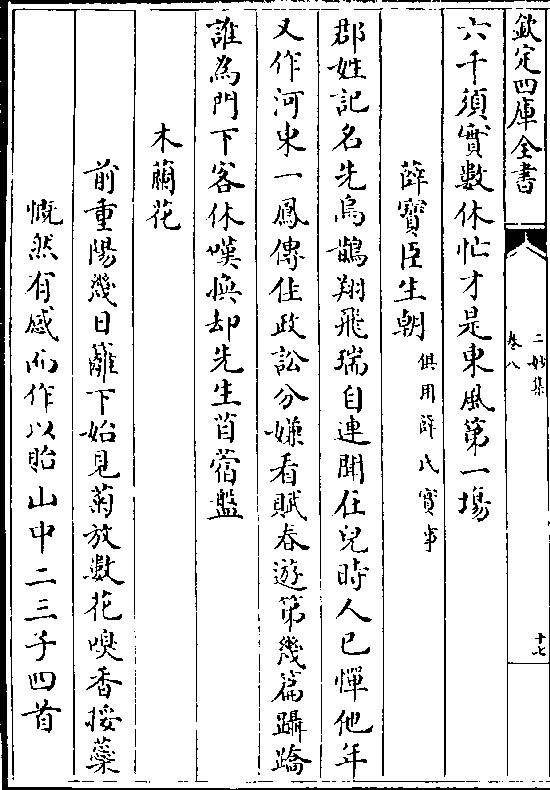 欽定四庫全書
二妙集
卷八
十七
六千須實數休忙才是東風第一場
薛寳臣生朝俱用薛氏實事
郡姓記名先烏鵲翔飛瑞自連聞在兒時人已憚他年
又作河東一鳳傳佳政訟分嫌看賦春遊第幾篇躡蹻
誰為門下客休嘆換却先生苜蓿盤
木蘭花
前重陽幾日籬下始見菊放數花嗅香挼蘂
慨然有感而作以貽山中二三子四首